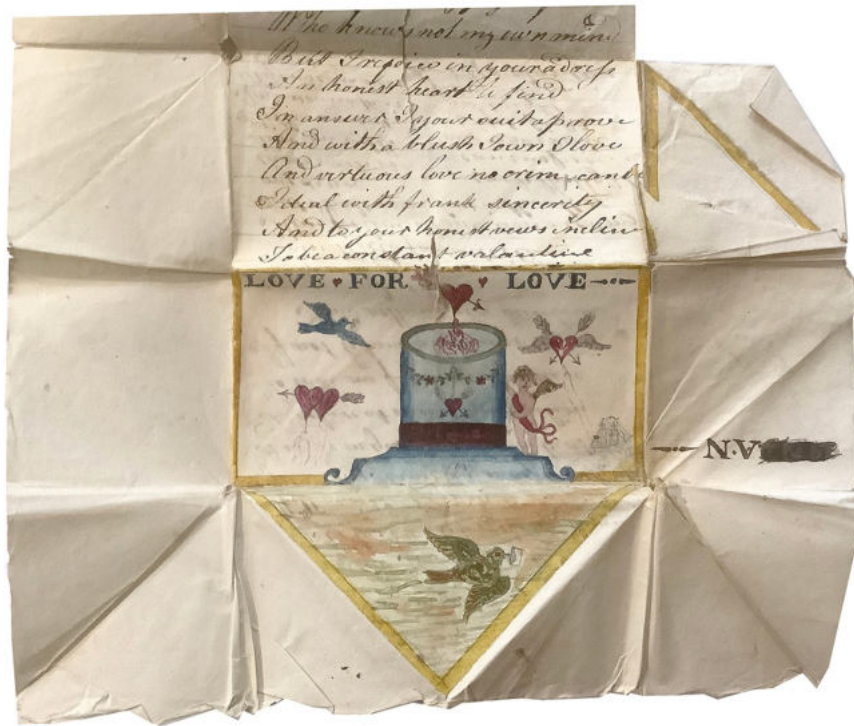 Who knows not my own mind
But I rejoice in your adress
An honest heart to find
In answer I your suit aprove
And with a blush I own I love
And virtuous love no crime can be
I deal with frank sincerity
And to your honest vews incline
To be a constant valantine
LOVE FOR LOVE
N.V